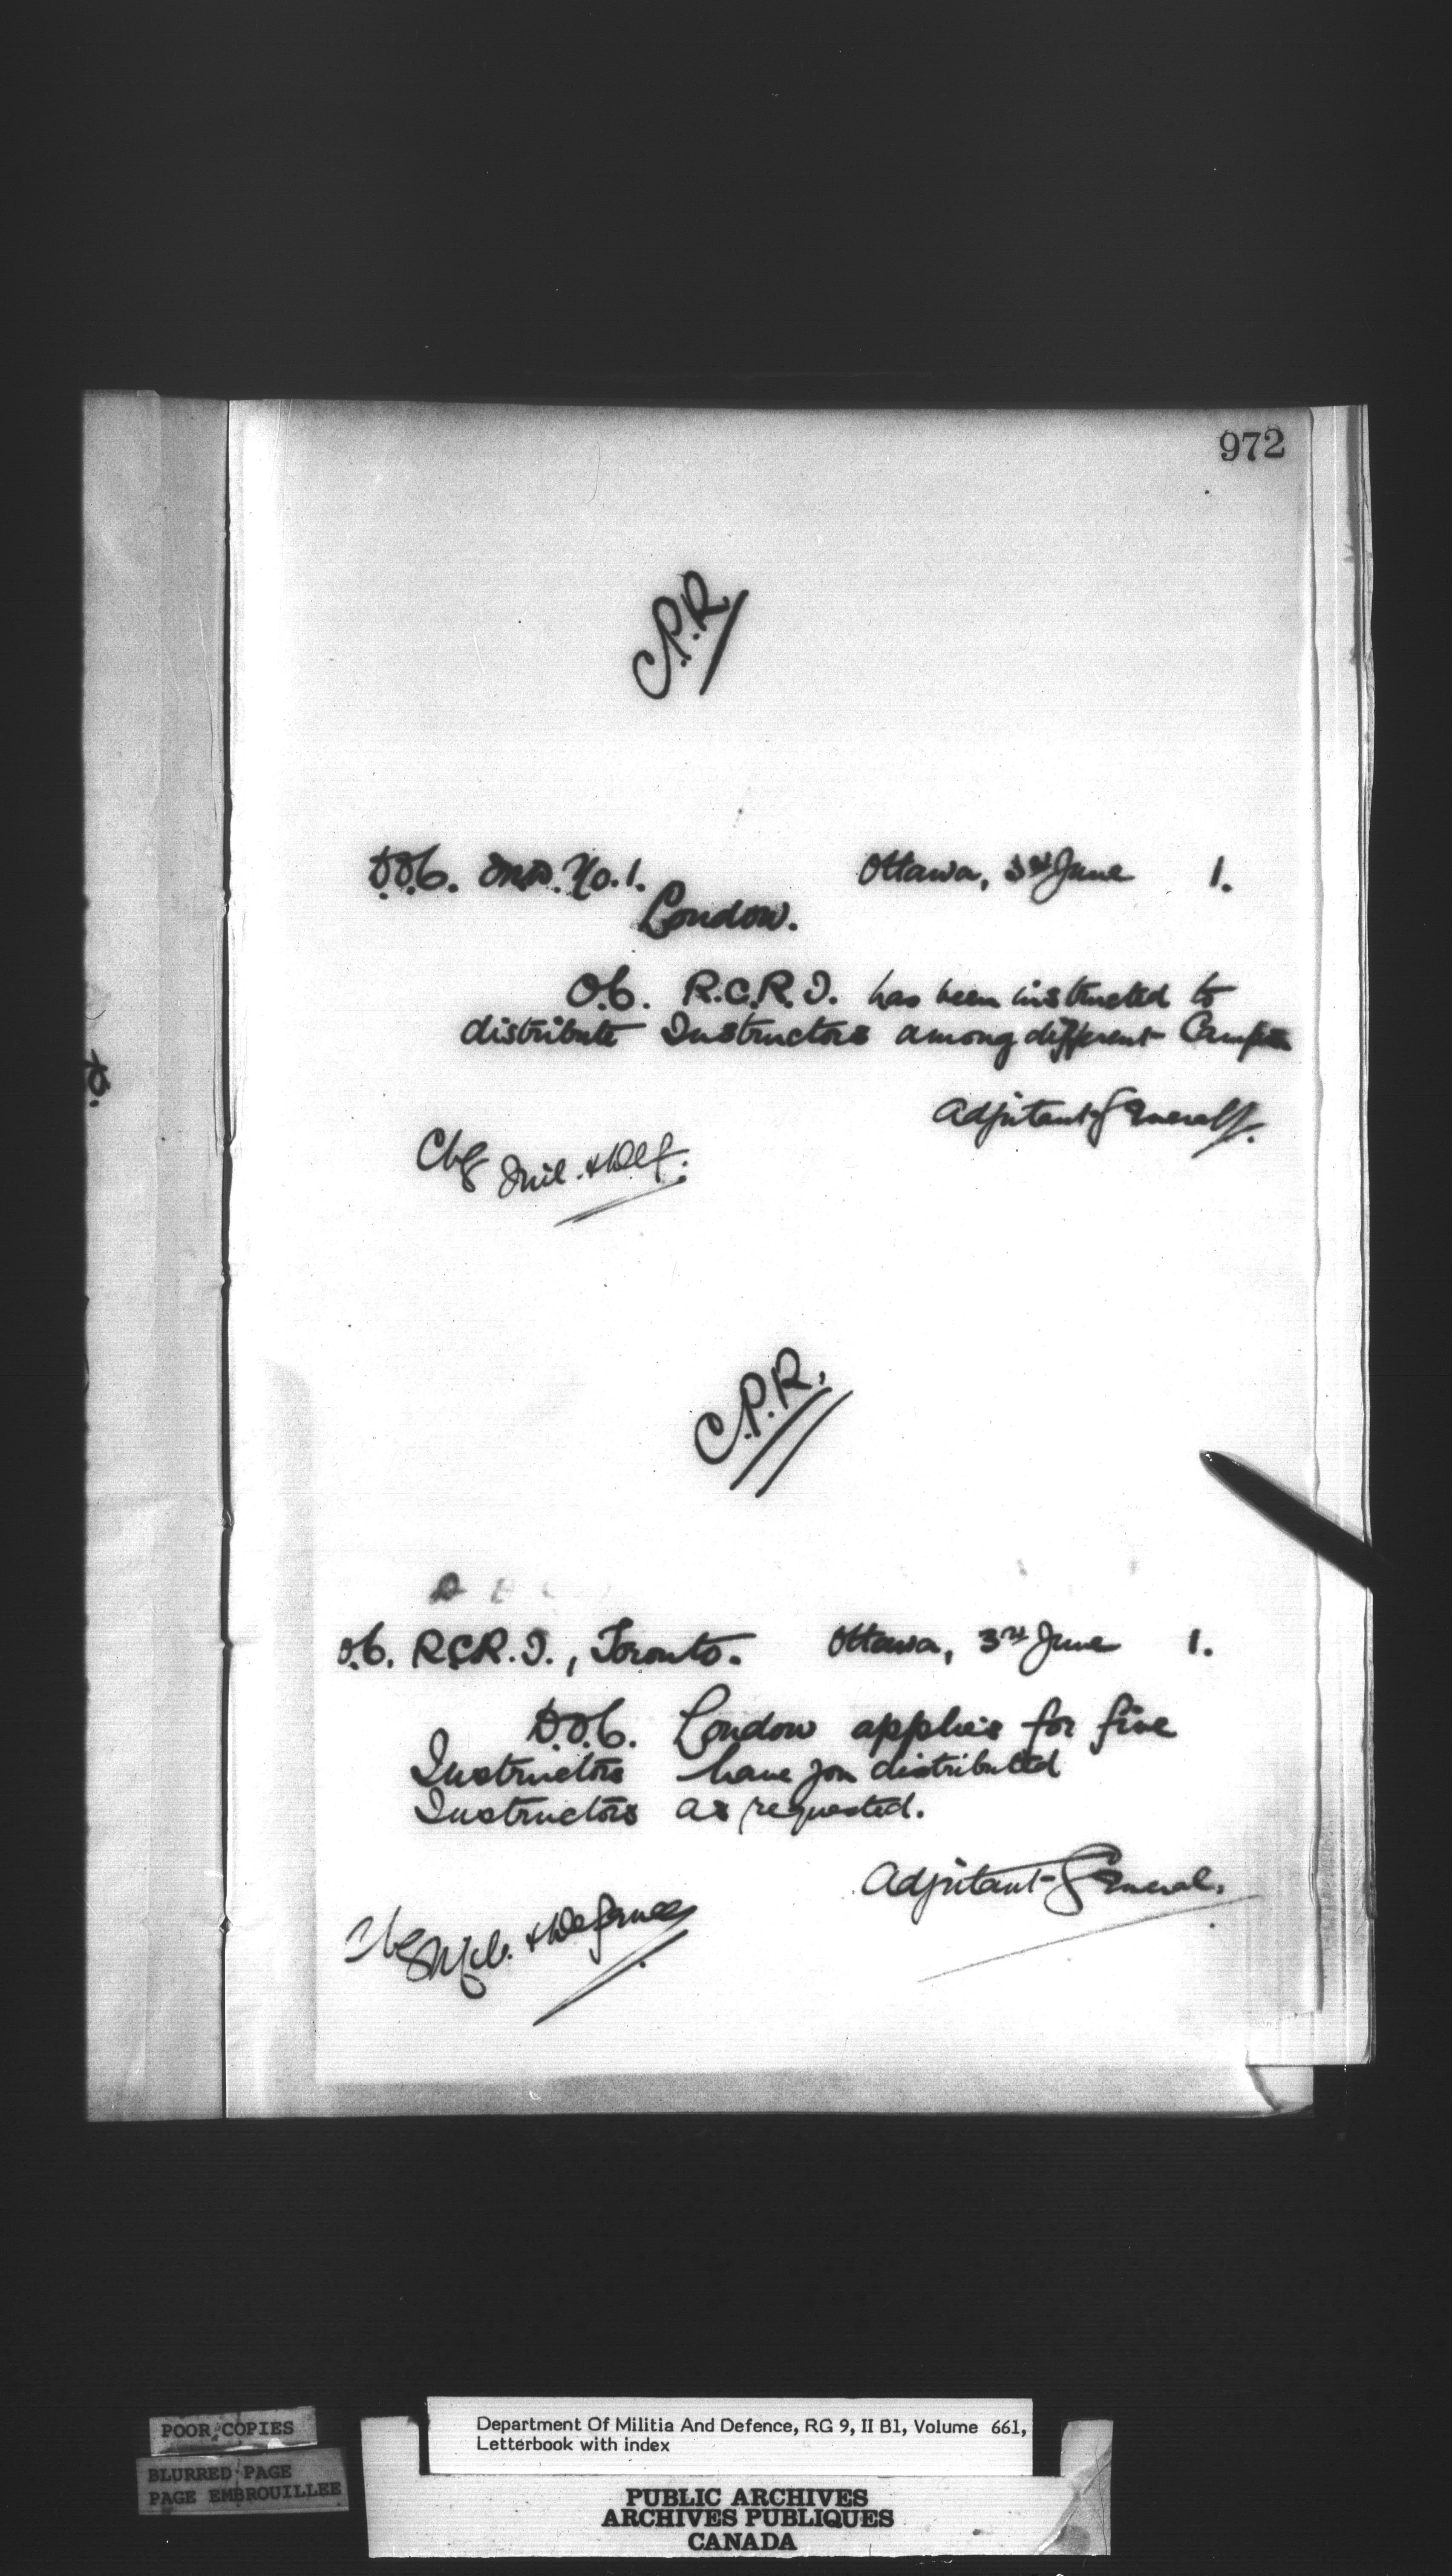 972
C.P.R.
D.O.C. M.D. No. 1. Ottawa, 3rd June 1.
London.
O.C. R.C.R.I. has been instructed to
distribute Instructors among different Camps
Adjutant-General.
Chg Mil. & Def.
C.P.R.
O.C. R.C.R.I., Toronto. Ottawa, 3rd June 1.
D.O.C. London applies for five
Instructors have you distributed
Instructors as requested.
Adjutant-General.
Chg Mil. & Defence
POOR COPIES
BLURRED PAGE
PAGE EMBROUILLEE
Department Of Militia And Defence, RG 9, II B1, Volume 661,
Letterbook with index
PUBLIC ARCHIVES
ARCHIVES PUBLIQUES
CANADA